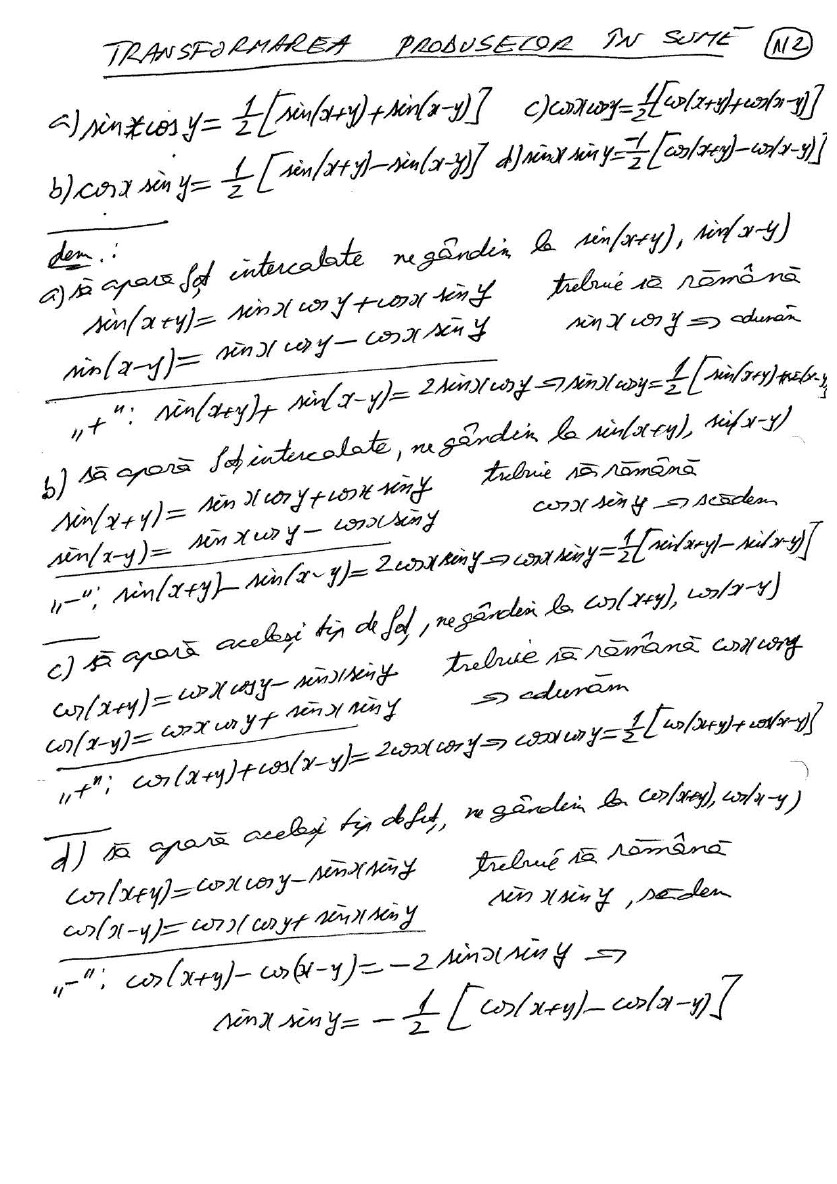 TRANSFORMAREA PRODUSELOR ÎN SUME N2
a) sin x cos y = 1/2 [sin(x+y)+sin(x-y)] c) cos x cos y = 1/2 [cos(x+y)+cos(x-y)]
b) cos x sin y = 1/2 [sin(x+y)-sin(x-y)] d) sin x sin y = -1/2 [cos(x+y)-cos(x-y)]
dem.:
a) să apară fcț intercalate ne gândim la sin(x+y), sin(x-y)
sin(x+y) = sin x cos y + cos x sin y trebuie să rămână
sin(x-y) = sin x cos y - cos x sin y sin x cos y ⇒ adunăm
„+": sin(x+y)+ sin(x-y) = 2 sin x cos y ⇒ sin x cos y = 1/2 [sin(x+y)+sin(x-y)]
b) să apară fcț intercalate, ne gândim la sin(x+y), sin(x-y)
sin(x+y) = sin x cos y + cos x sin y trebuie să rămână
sin(x-y) = sin x cos y - cos x sin y cos x sin y ⇒ scădem
„-": sin(x+y) - sin(x-y) = 2 cos x sin y ⇒ cos x sin y = 1/2 [sin(x+y) - sin(x-y)]
c) să apară același tip de fcț, ne gândim la cos(x+y), cos(x-y)
cos(x+y) = cos x cos y - sin x sin y trebuie să rămână cos x cos y
cos(x-y) = cos x cos y + sin x sin y ⇒ adunăm
„+": cos(x+y)+cos(x-y) = 2 cos x cos y ⇒ cos x cos y = 1/2 [cos(x+y)+cos(x-y)]
d) să apară același tip de fcț, ne gândim la cos(x+y), cos(x-y)
cos(x+y) = cos x cos y - sin x sin y trebuie să rămână
cos(x-y) = cos x cos y + sin x sin y sin x sin y, scădem
„-": cos(x+y) - cos(x-y) = -2 sin x sin y ⇒
sin x sin y = - 1/2 [cos(x+y) - cos(x-y)]